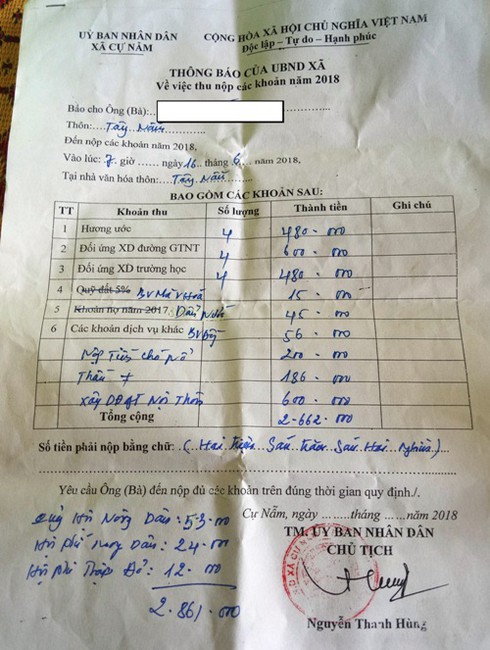 ỦY BAN NHÂN DÂN
XÃ CỰ NẪM
CỘNG HÒA XÃ HỘI CHỦ NGHĨA VIỆT NAM
Độc lập – Tự do – Hạnh phúc
THÔNG BÁO CỦA UBND XÃ
Về việc thu nộp các khoản năm 2018
Báo cho Ông (Bà):
Thôn:....Tây Nẫm............
Đến nộp các khoản năm 2018,
Vào lúc: 7. giờ ...... ngày 16.. tháng 6... năm 2018,
Tại nhà văn hóa thôn:....Tây Nẫm........
BAO GỒM CÁC KHOẢN SAU:
TT Khoản thu Số lượng Thành tiền Ghi chú
1 Hương ước 4 480.000
2 Đối ứng XD đường GTNT 4 600.000
3 Đối ứng XD trường học 4 480.000
4 Quỹ đất 5% 15.000
5 Khoản nợ năm 2017 45.000
6 Các khoản dịch vụ khác 56.000
200.000
186.000
Nội Thôn 600.000
Tổng cộng 2.662.000
Số tiền phải nộp bằng chữ: (Hai Sáu Sáu Hai
Yêu cầu Ông (Bà) đến nộp đủ các khoản trên đúng thời gian quy định./.
Cự Nẫm, ngày ....... tháng ..... năm 2018
TM. ỦY BAN NHÂN DÂN
CHỦ TỊCH
Nguyễn Thanh Hùng
Quỹ Hội Nông Dân: 53.000
Hội phí Nông Dân: 24.000
Hội phí Thập Đỏ: 12.000
2.861.000